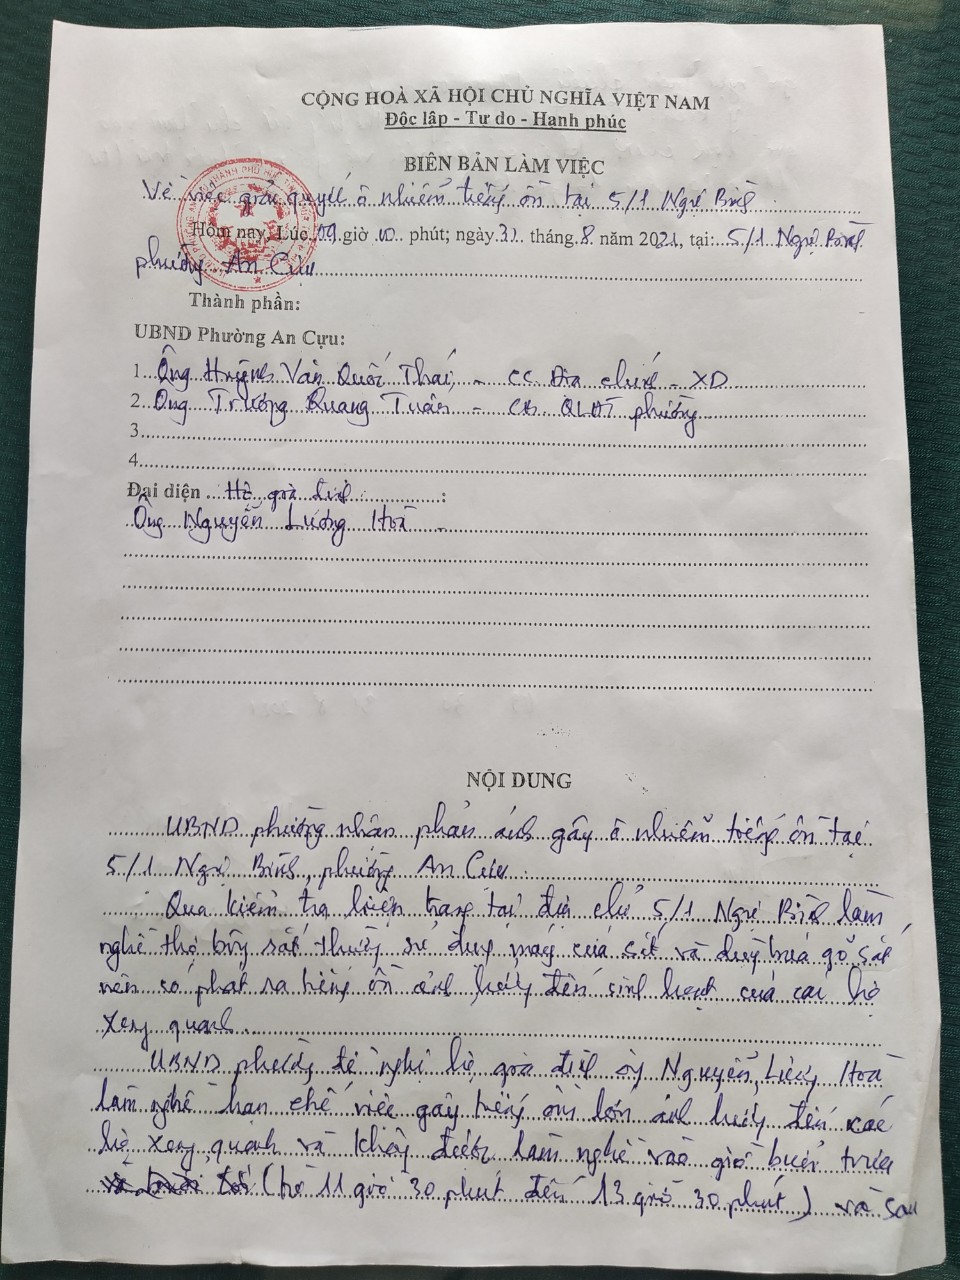 CỘNG HOÀ XÃ HỘI CHỦ NGHĨA VIỆT NAM
Độc lập - Tự do - Hạnh phúc
BIÊN BẢN LÀM VIỆC
Về việc giải quyết ô nhiễm tiếng ồn tại 5/1 Nguyệ Biều
Hôm nay, Lúc 09 giờ 00 phút; ngày 31 tháng 8 năm 2021, tại: 5/1
phường An Cựu
Thành phần:
UBND Phường An Cựu:
1. Ông Huỳnh Văn Quốc Thái - CC Địa chính - XD
2. Ông Trương Quang Tuấn - phường
3.
4.
Đại diện Hộ gia đình :
Ông Nguyễn Lương Hoà
NỘI DUNG
UBND phường nhận phản ánh gây ô nhiễm tiếng ồn tại
5/1 phường An Cựu
Qua kiểm tra hiện trạng tại địa chỉ 5/1 làm
nghề thợ sắt thường sử dụng máy cưa sắt và dùng búa gõ sắt
nên có phát ra tiếng ồn ảnh hưởng đến sinh hoạt của các hộ
xung quanh.
UBND phường đề nghị hộ gia đình ông Nguyễn Lương Hoà
làm nghề hạn chế việc gây tiếng ồn lớn ảnh hưởng đến các
hộ xung quanh và không được làm nghề vào giờ buổi trưa
(từ 11 giờ 30 phút đến 13 giờ 30 phút) và sau